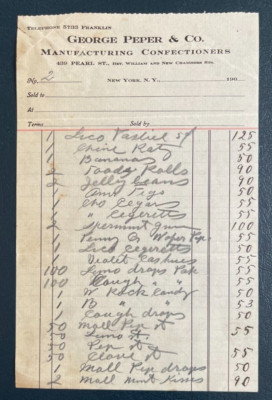 TELEPHONE 5735 FRANKLIN
GEORGE PEPER & CO.
MANUFACTURING CONFECTIONERS
439 PEARL ST., BET. WILLIAM AND NEW CHAMBERS STS.
No. 2 NEW YORK, N.Y. 190
Sold to
At
Terms Sold by
1 Lico Pastiel 5¢ 125
1 Chine Rats 55
1 Bananas 50
2 Toody Rolls 90
2 Jelly beans 90
1 Pigs 50
1 Cho Cegars 55
1 " Cegeretts 55
2 Spermint gum 100
1 Penny Wafer Pep 55
1 Lico Cegeretts 50
1 Violet Cashues 55
100 Limo drops Pak 55
100 Cough " " 55
1 W Rock Candy 50
1 B " " 53
1 Cough drops 50
50 Mall Pep
50 Limo 55
50 Pep
50 Clove 55
1 Mall Pep drops 50
2 Mall Mint Kisses 90